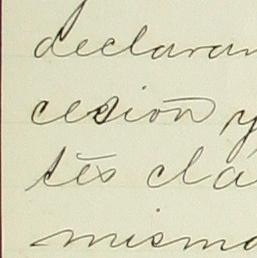 declaran
cesión y
tes clá
misma